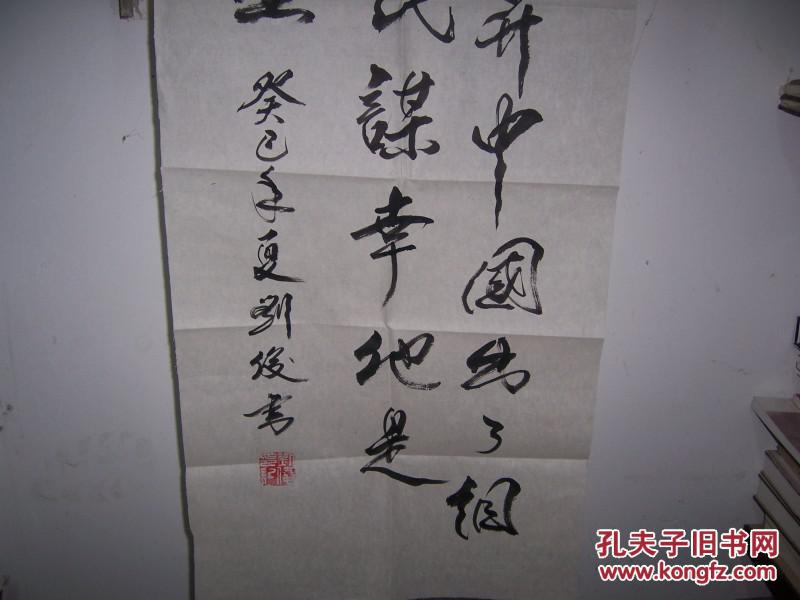 升中國出了個
民謀幸他是
癸巳年夏劉俊書
孔夫子旧书网
www.kongfz.com